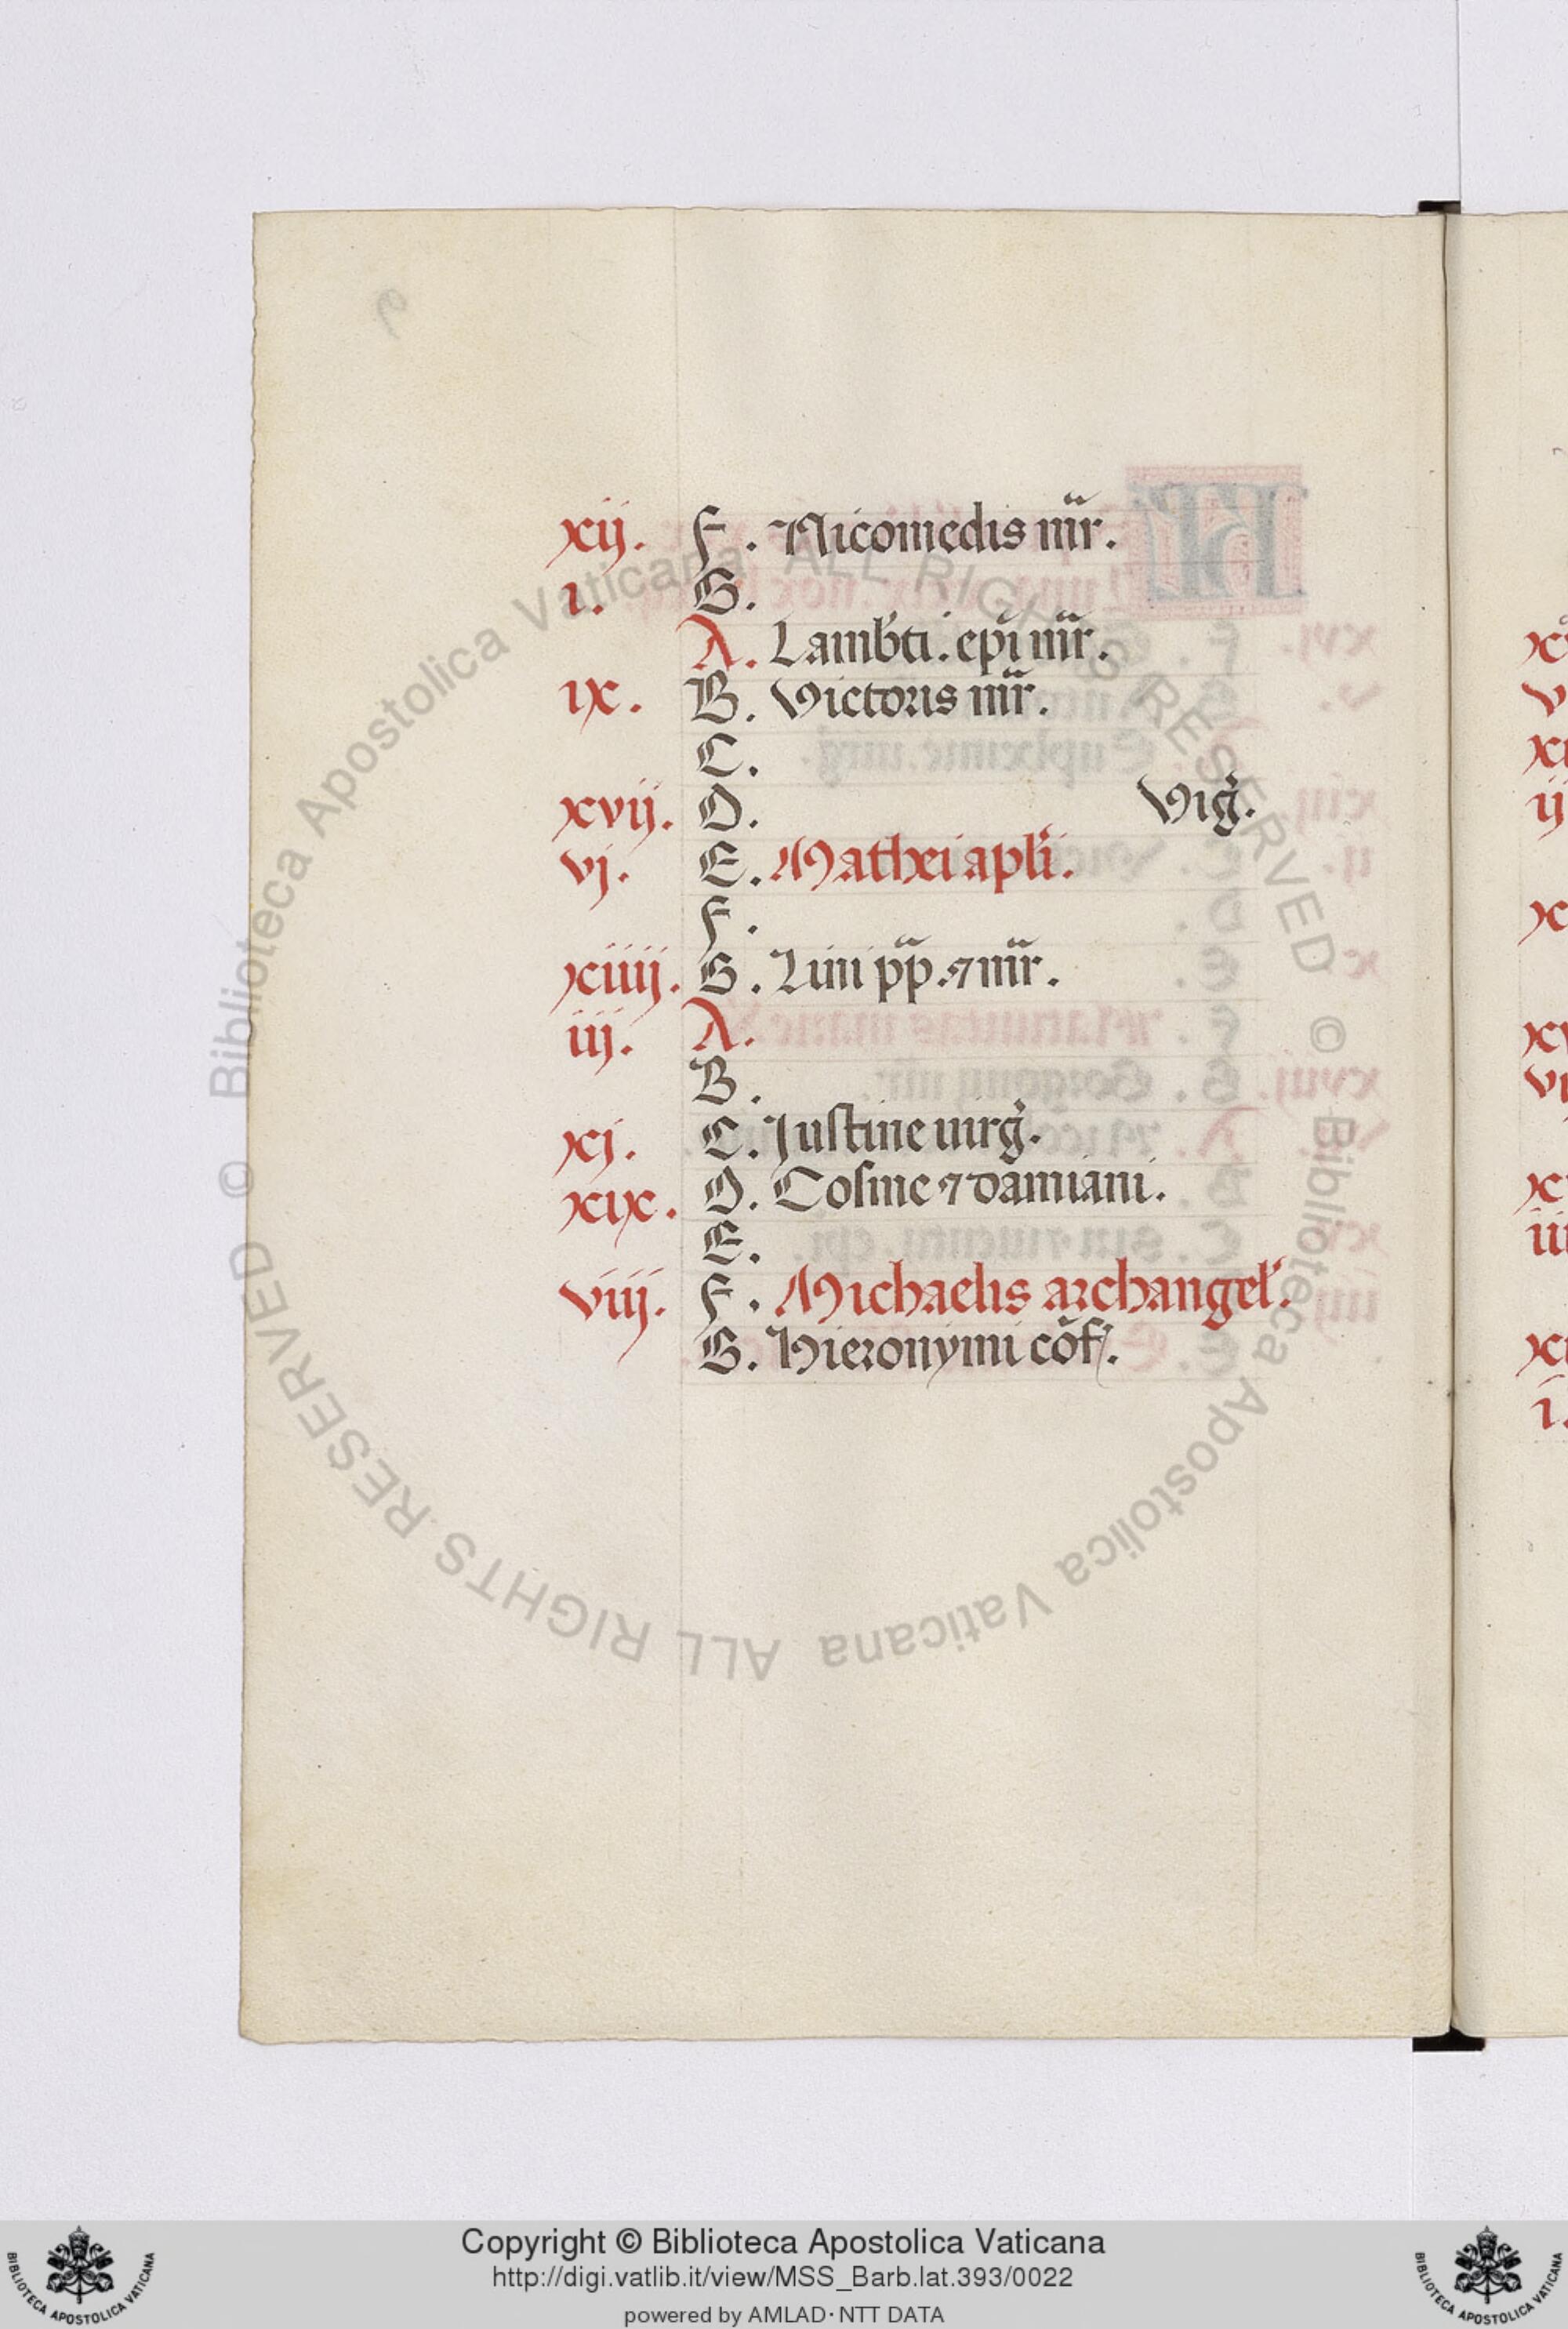 xij. F. Nicomedis mr̄.
i. G.
A. Lamb'ti. epi mr̄.
ix. B. Victoris mr̄.
C.
xvij. D. Vig̛.
vj. E. Mathei apl'i.
F.
xiiij. G. Lini pp̄. ⁊ mr̄.
iij. A.
B.
xj. C. Iustine uirg̛.
xix. D. Cosme ⁊ damiani.
E.
viij. F. Michaelis archangel'.
G. Hieronymi cōf.
© Biblioteca Apostolica Vaticana ALL RIGHTS RESERVED © Biblioteca Apostolica Vaticana ALL RIGHTS RESERVED
Copyright © Biblioteca Apostolica Vaticana
http://digi.vatlib.it/view/MSS_Barb.lat.393/0022
powered by AMLAD·NTT DATA
BIBLIOTECA APOSTOLICA VATICANA
BIBLIOTECA APOSTOLICA VATICANA